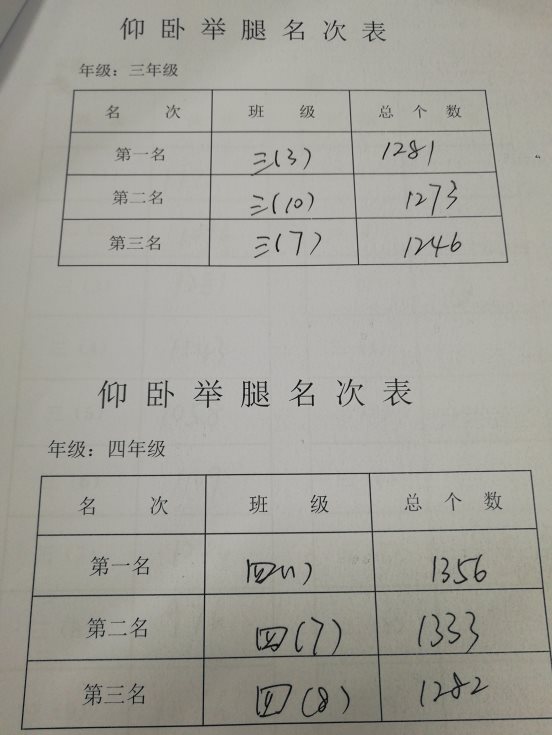 仰卧举腿名次表
年级：三年级
名 次 班 级 总 个 数
第一名 三(3) 1281
第二名 三(10) 1273
第三名 三(7) 1246
仰卧举腿名次表
年级：四年级
名 次 班 级 总 个 数
第一名 四(1) 1356
第二名 四(7) 1333
第三名 四(8) 1282